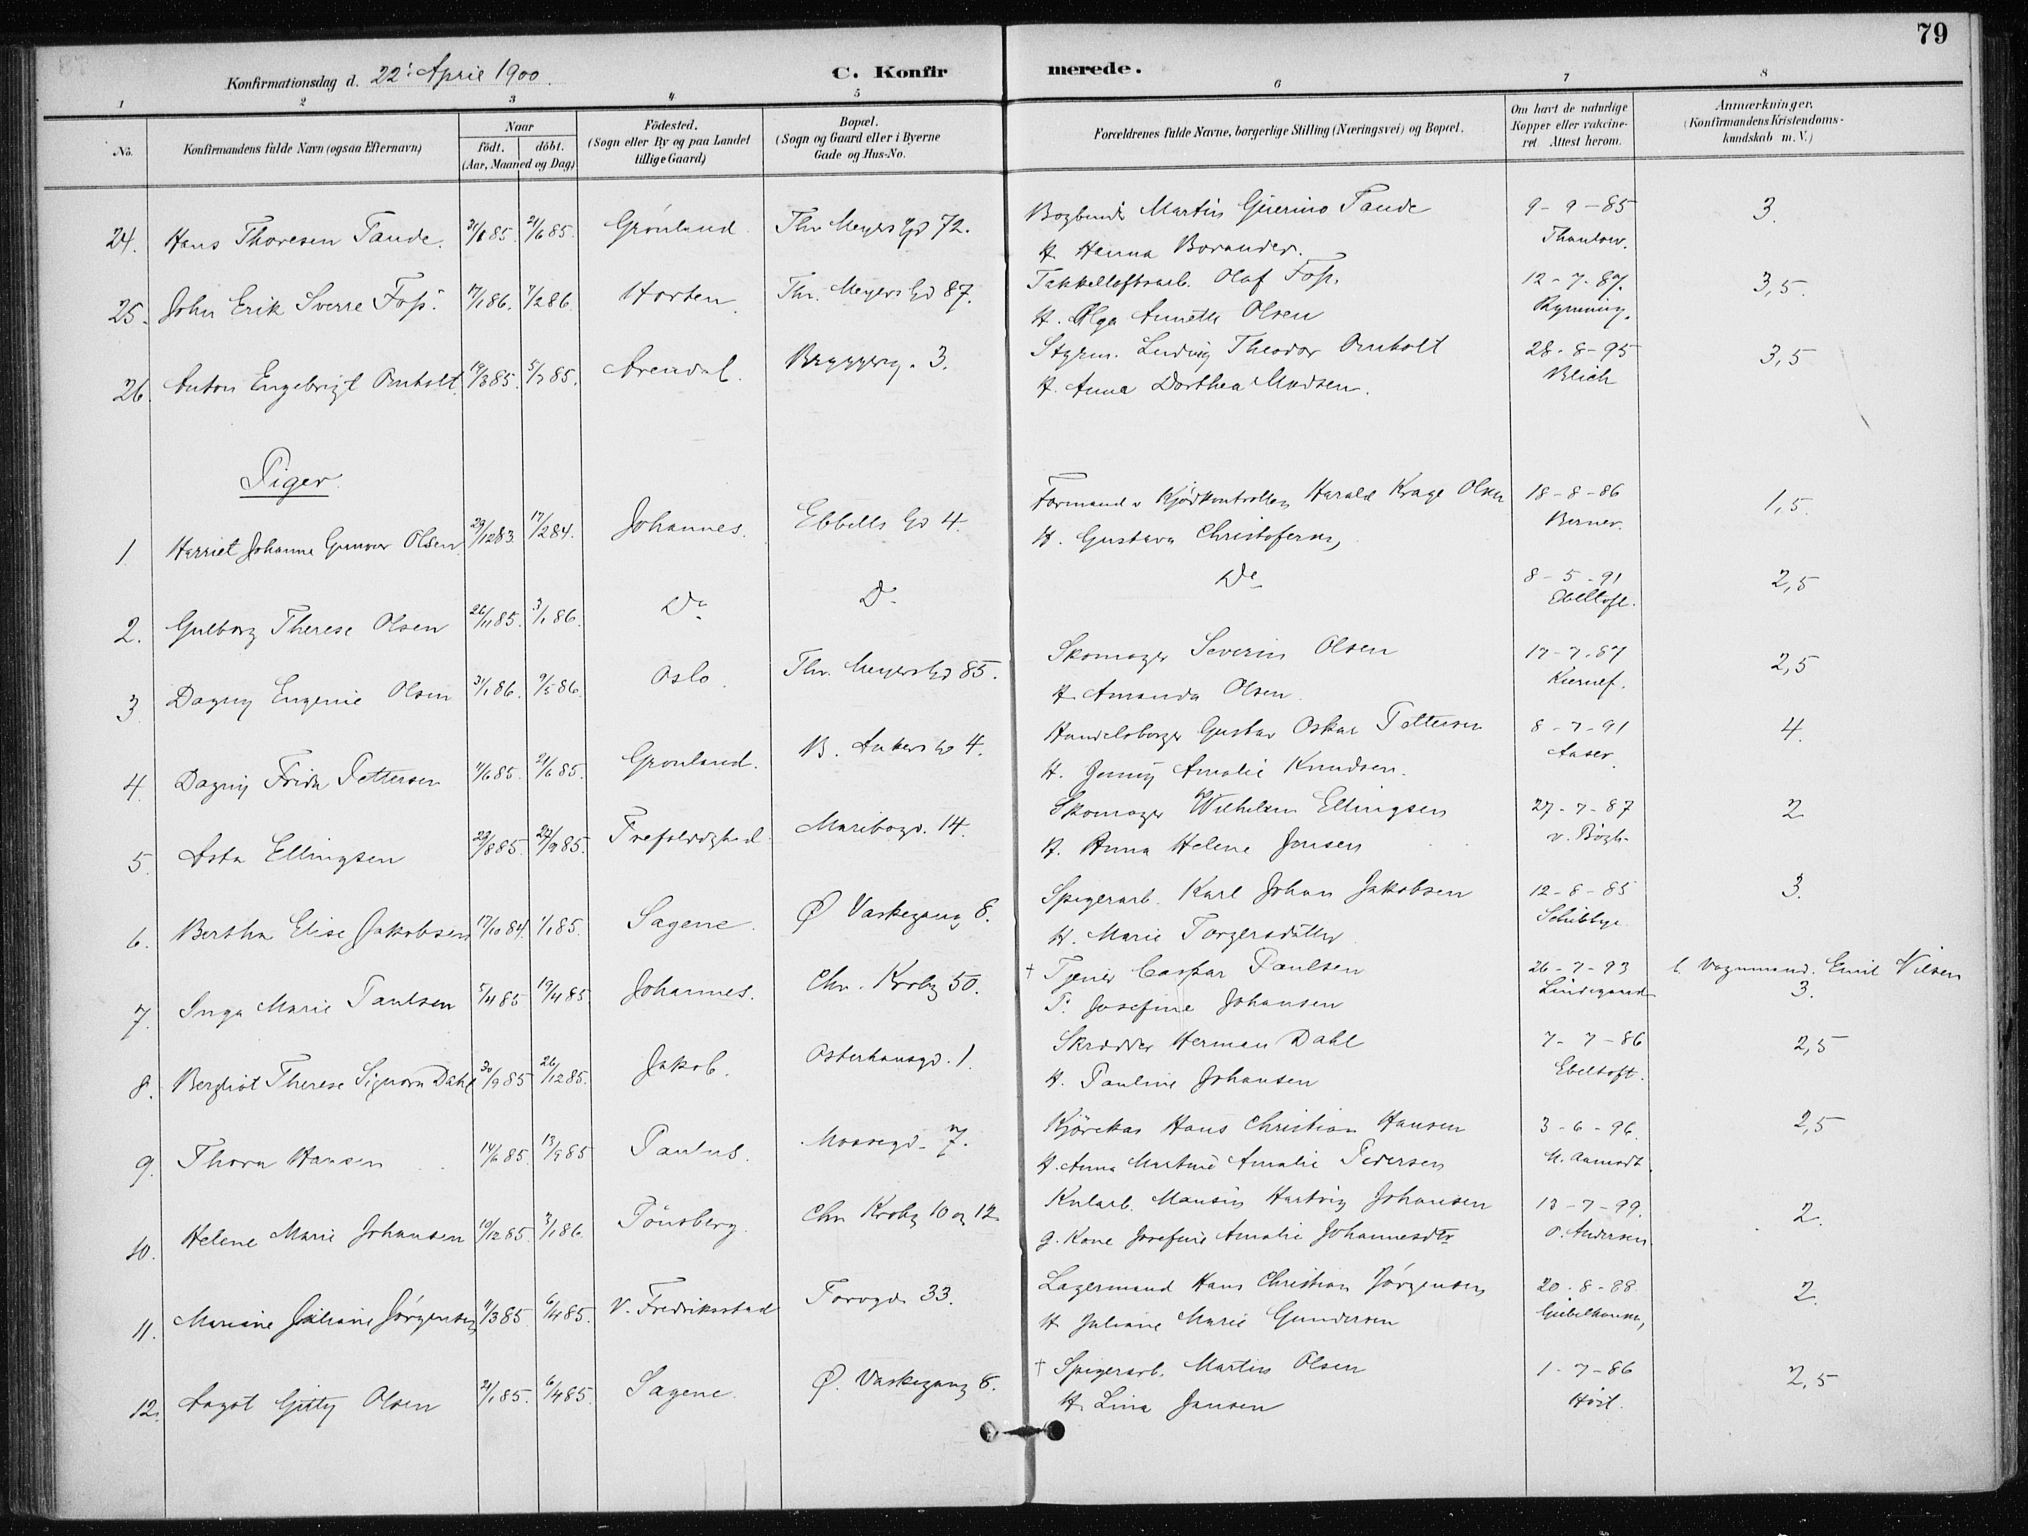 79
Konfirmationsdag d. 22' April 1900. C. Konfirmerede.
1 2 3 4 5 6 7 8
No. Konfirmandens fulde Navn (ogsaa Efternavn) Naar født. døbt. (Aar, Maaned og Dag) Fødested. (Sogn eller By og paa Landet tillige Gaard) Bopæl. (Sogn og Gaard eller i Byerne Gade og Hus-No. Forældrenes fulde Navne, borgerlige Stilling (Næringsvei) og Bopæl. Om havt de naturlige Kopper eller vakcineret. Attest herom. Anmærkninger. (Konfirmandens Kristendomskundskab m. V.)
24. Hans Thoresen Tande. 85. 21/6 85. Grønland. Thv. Meyers Gd 72. Martin Guerino Tande 9-9-85 3.
H. Hanna Borander. Thaulow.
25. John Erik Sverre Foss. 17/1 86. 7/2 86. Horten. Thv. Meyers Gd 87. Takkelloftsarb. Olaf Foss. 12-7-87. 3,5.
H. Olga Annette Olsen Rynning.
26. Anton Engebrigt Omholt 19/3 85. 85. Arendal. Bryggerg. 3. Styrm. Ludvig Theodor Omholt 28-8-95 3,5
H. Anna Dorthea Madsen. Blich
Piger.
1 Harriet Johanne Gunvor Olsen 29/12 83. 17/2 84. Johannes. Ebbells Gd 4. Formand v Kjødkontrollen Harald Krage Olsen 18-8-86 1,5.
H. Gustava Christofersen Berner.
2. Gulborg Therese Olsen 26/11 85. 3/1 86. Do D. Do 8-5-91 2,5
Ebeltoft.
3 Dagny Eugenie Olsen 31/1 86. 9/5 86. Oslo. Thv. Meyers Gd 85. Skomager Severin Olsen 17-7-87 2,5
H. Amanda Olsen. Kierulf.
4. Dagny Frida Pettersen 4/6 85. 21/6 85. Grønland. B. Ankers Gd 4. Handelsborger Gustav Oskar Pettersen 8-7-91 4.
H. Jenny Amalie Knudsen. Aaser.
5. Asta Ellingsen 23/8 85. 27/9 85. Trefoldighed. Maribogd. 14. Skomager Wilhelm Ellingsen 27-7-87 2
H. Anna Helene Jensen
6. Bertha Elise Jakobsen 17/10 84. 1/1 85. Sagene. Ø Vaskegang 8. Spigerarb. Karl Johan Jakobsen 12-8-85 3.
H. Marie Torgersdatter Schibbye.
7. Inga Marie Paulsen 5/4 85 19/4 85. Johannes. Chr. Krohg 50. † Tjener Caspar Paulsen 26-7-93 Vognmand. Emil Nilsen
P. Josefine Johansen Lindegaard 3.
8. Bergliot Therese Signora Dahl 30/9 85 26/12 85. Jakob. Osterhausgd. 1. Skrædder Herman Dahl 7-7-86 2,5
H. Pauline Johansen Ebeltoft.
9. Thora Hansen 14/6 85. 13/9 85 Paulus. Mossegd. 7. Kjørekar Hans Christian Hansen 3-6-96. 2,5
H. Anna Martine Amalie Pedersen M. Aamodt.
10. Helene Marie Johansen 10/12 85. 3/1 86. Tønsberg. Chr Krohg 10 og 12 Kularb. Mausin Hartvig Johansen 13-7-99. 2.
g. Kone Josefine Amalie Johannesdtr O. Andersen.
11. Mariane Juliane Jørgensen 11/3 85. 6/4 85. V. Fredriksstad Torvgd. 33. Lagermand Hans Christian Jørgensen 20-8-88. 2.
H Juliane Marie Gundersen
12. Aagot Gitty Olsen 21/1 85. 6/4 85. Sagene. Ø. Vaskegang 8. † Spigerarb. Martin Olsen 1-7-86 2,5
H. Lina Jansen